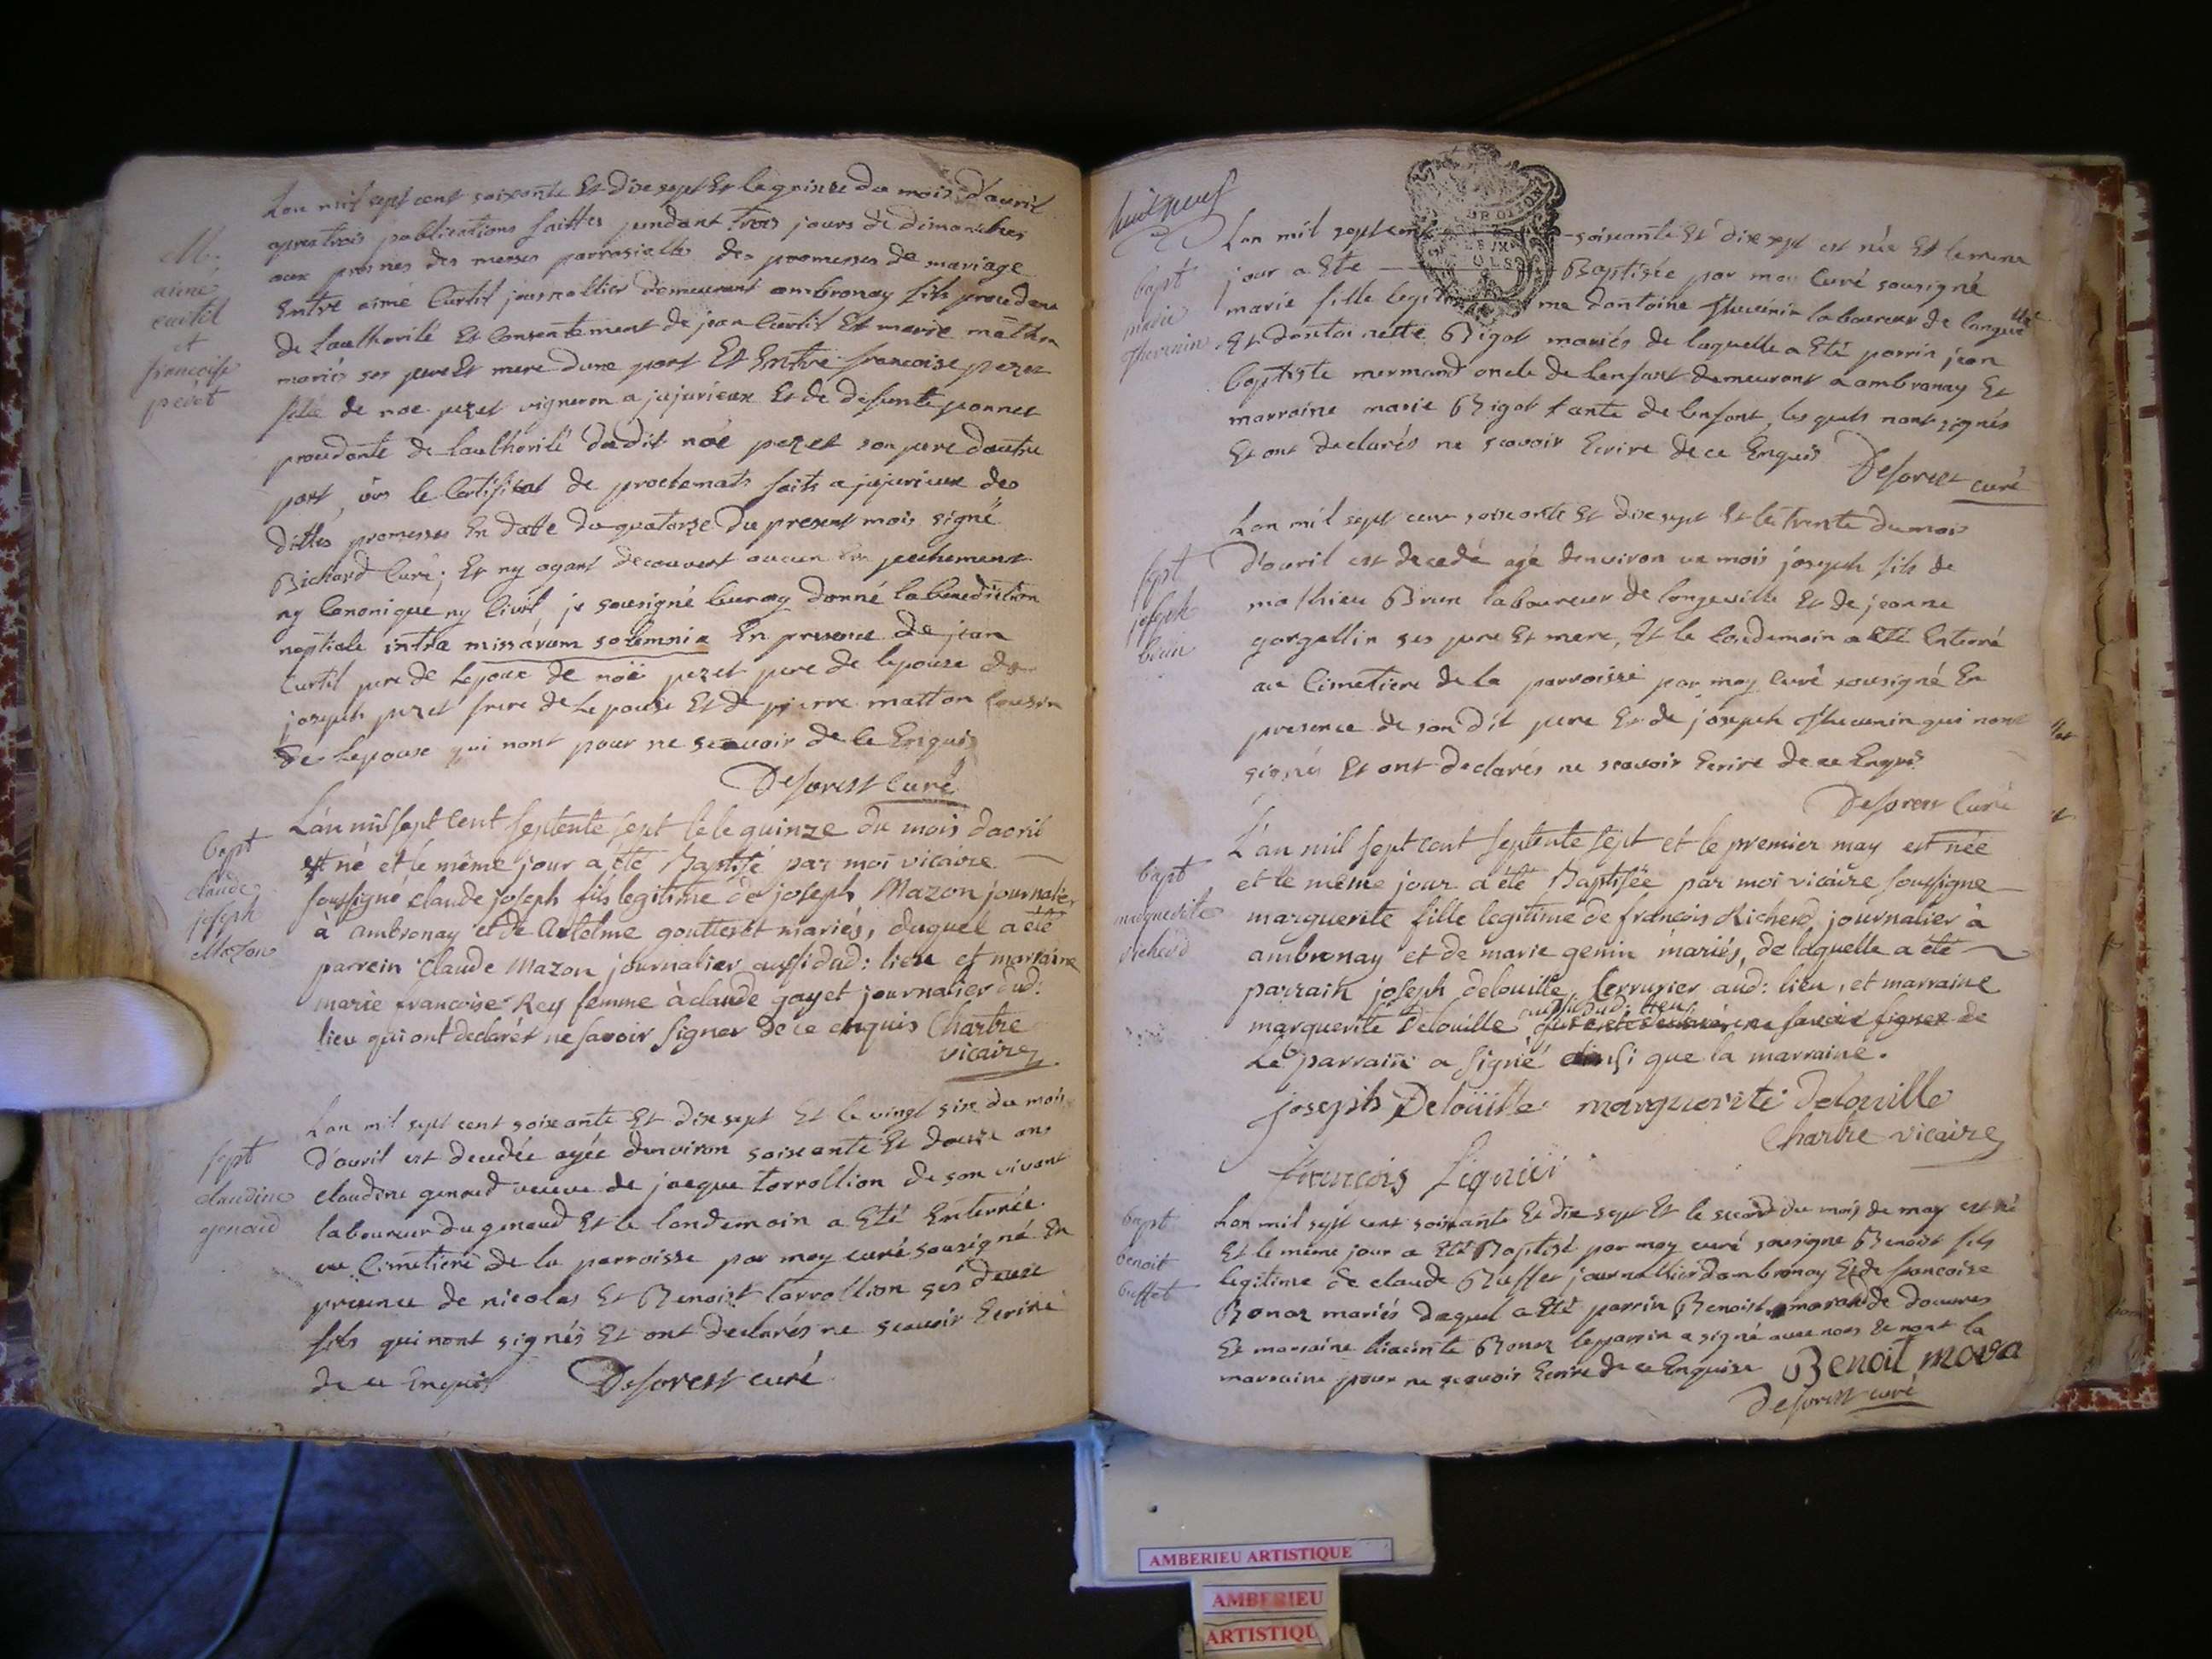 Lan mil sept cent soixante Et dix sept Et le quinze du mois d'avril
apres trois publications faittes pendant trois jours de dimanches
aux prosnes des messes parroisielles des promesses de mariage
Entre aimé Curtil journallier demeurant ambronay fils procedant
de Lauthorité Et Consentement de jean Curtil Et marie
mariés ses pere Et mere dune part Et Entre francoise pezet
fille de noe pezet vigneron a jujurieux Et de defunte
procedante de lauthorité dudit noé pezet son pere dautre
part, le Certificat de proclamats faits a jujurieux des
dittes promesses En datte du quatorze du present mois signé
Bichard Curé; Et ny ayant decouvert aucun Em pechement
ny Canonique ny Civil je sousigné Curé ay donné la benediction
nuptiale intra missarum solemnia En presence de jean
Curtil pere de Lepoux de noë pezet pere de lepouse de
joseph pezet frere de Lepouse Et de pierre matton Cousin
de Lepouse qui nont pour ne scavoir de Ce Enquis
Deforest Curé
M.
aimé
curtil
et
françoise
pezet
L'an mil sept Cent septente sept et le quinze du mois davril
est né et le même jour a été Baptisé par moi vicaire
soussigné claude joseph fils legitime de joseph Mazon journalier
à ambronay et de Antelme goutteret mariés, duquel a été
parrein Claude Mazon journalier aussi dud: lieu et marraine
marie francoise Rey femme à claude gayet journalier dud:
lieu qui ont declarés ne savoir signer de ce enquis Chartre
vicaire
bapt
claude
joseph
Mazon
Lan mil sept cent soixante Et dix sept Et le vingt six du mois
d'avril est decedée agée denviron soixante Et douze ans
claudine genoud veuve de jacque torrollion de son vivant
laboureur du genoud Et le landemain a Eté Enterrée
au Cimetiere de la parroisse par moy curé sousigné En
presence de nicolas Et Benoist torrollion ses deux
fils qui nont signés Et ont declarés ne scavoir Ecrire
de ce Enquis Deforest curé
sept
claudine
genoud
huit neuf
Lan mil sept cent soixante Et dix sept est née Et le meme
jour a Eté Baptisée par moy Curé sousigné
marie fille legitime dantoine Thevenin laboureur de longeville
Et dantoinette Bigot mariés de laquelle a Eté parrin jean
baptiste mermand oncle de lenfant demeurant a ambronay Et
marraine marie Bigot tante de lenfant, lesquels nont signés
Et ont declarés ne scavoir Ecrire de ce Enquis
Deforest curé
bapt
marie
Thevenin
Lan mil sept cent soixante Et dix sept Et le trente du mois
d'avril est decedé agé denviron un mois joseph fils de
mathieu Brun laboureur de longeville Et de jeanne
gorgellin ses pere Et mere, Et le landemain a Eté Enterré
au Cimetiere de la parroisse par moy Curé sousigné En
presence de son dit pere Et de joseph Thevenin qui nont
signés Et ont declarés ne scavoir Ecrire de ce Enquis
Deforest Curé
sept
joseph
brun
L'an mil sept cent septente sept et le premier may est née
et le même jour a été Baptisée par moi vicaire soussigné
marguerite fille legitime de francois Richerd journalier à
ambronay et de marie genin mariés, de laquelle a été
parrain joseph delouille serrurier aud: lieu, et marraine
aussi dud: lieu
marguerite Delouille savoir signer de
Le parrain a signé ainsi que la marraine.
joseph Deloüille marguerite delouille
Chartre vicaire
françois
bapt
marguerite
richerd
Lan mil sept cent soixante Et dix sept Et le second du mois de may est né
Et le même jour a Eté Baptisé par moy curé sousigne Benoist fils
legitime de claude Buffet journallier dambronay Et de francoise
Bonaz mariés duquel a Eté parrin Benoist de douvres
Et marraine hiacinte Bonaz le parrin a signé avec nous Et non la
marraine pour ne scavoir Ecrire de ce Enquise Benoit mora
Deforest curé
bapt
benoit
buffet
AMBERIEU ARTISTIQUE
AMBERIEU
ARTISTIQU